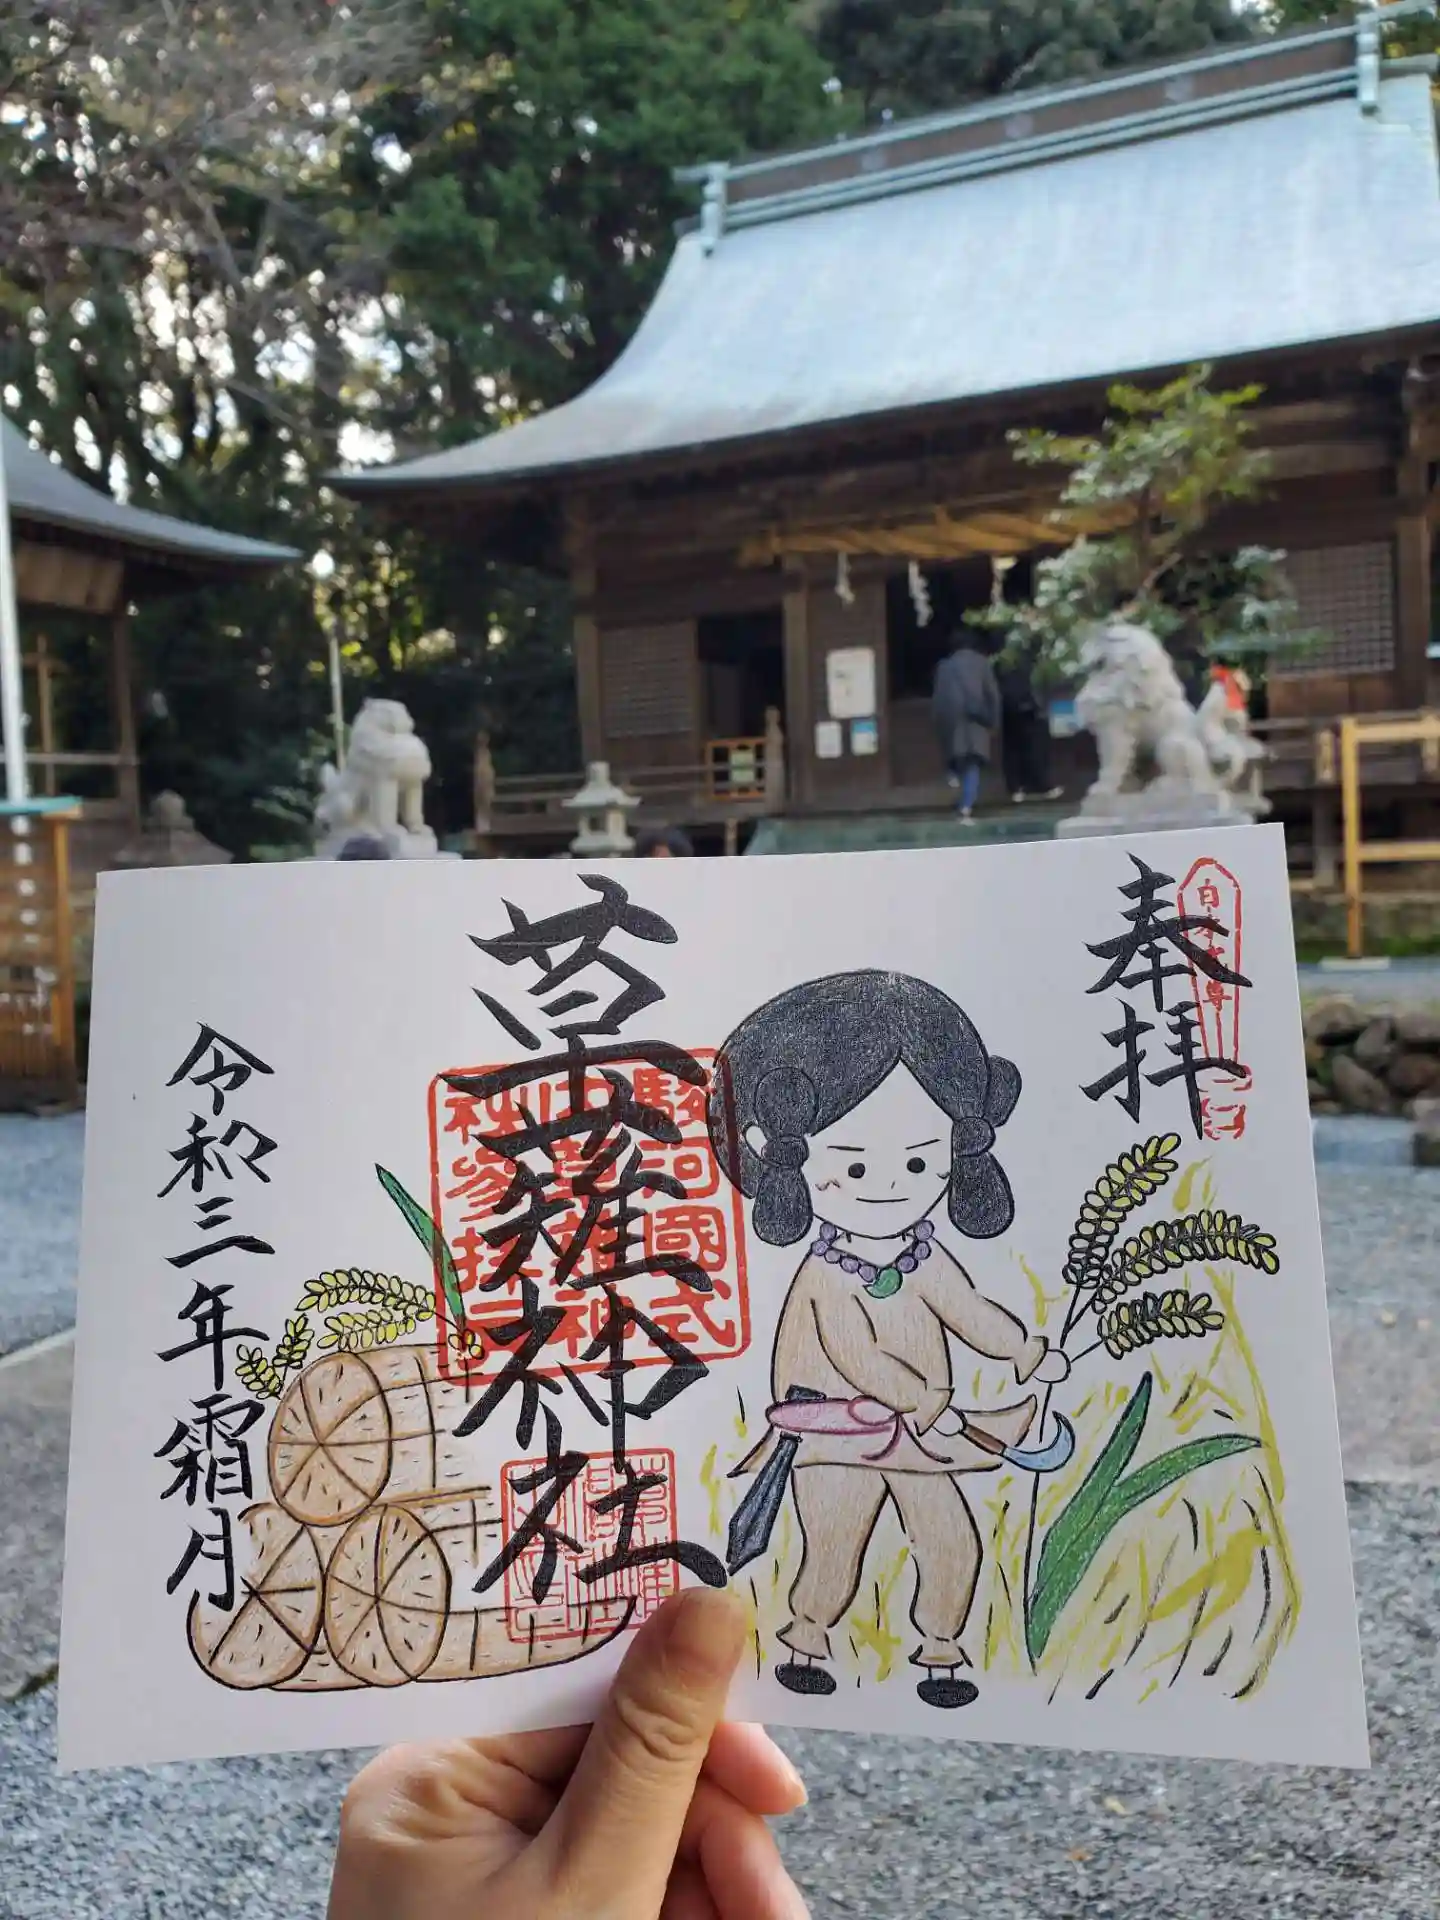 奉拝
日本武尊
草薙神社
駿河國式
内草薙神
社参拝之
令和三年霜月